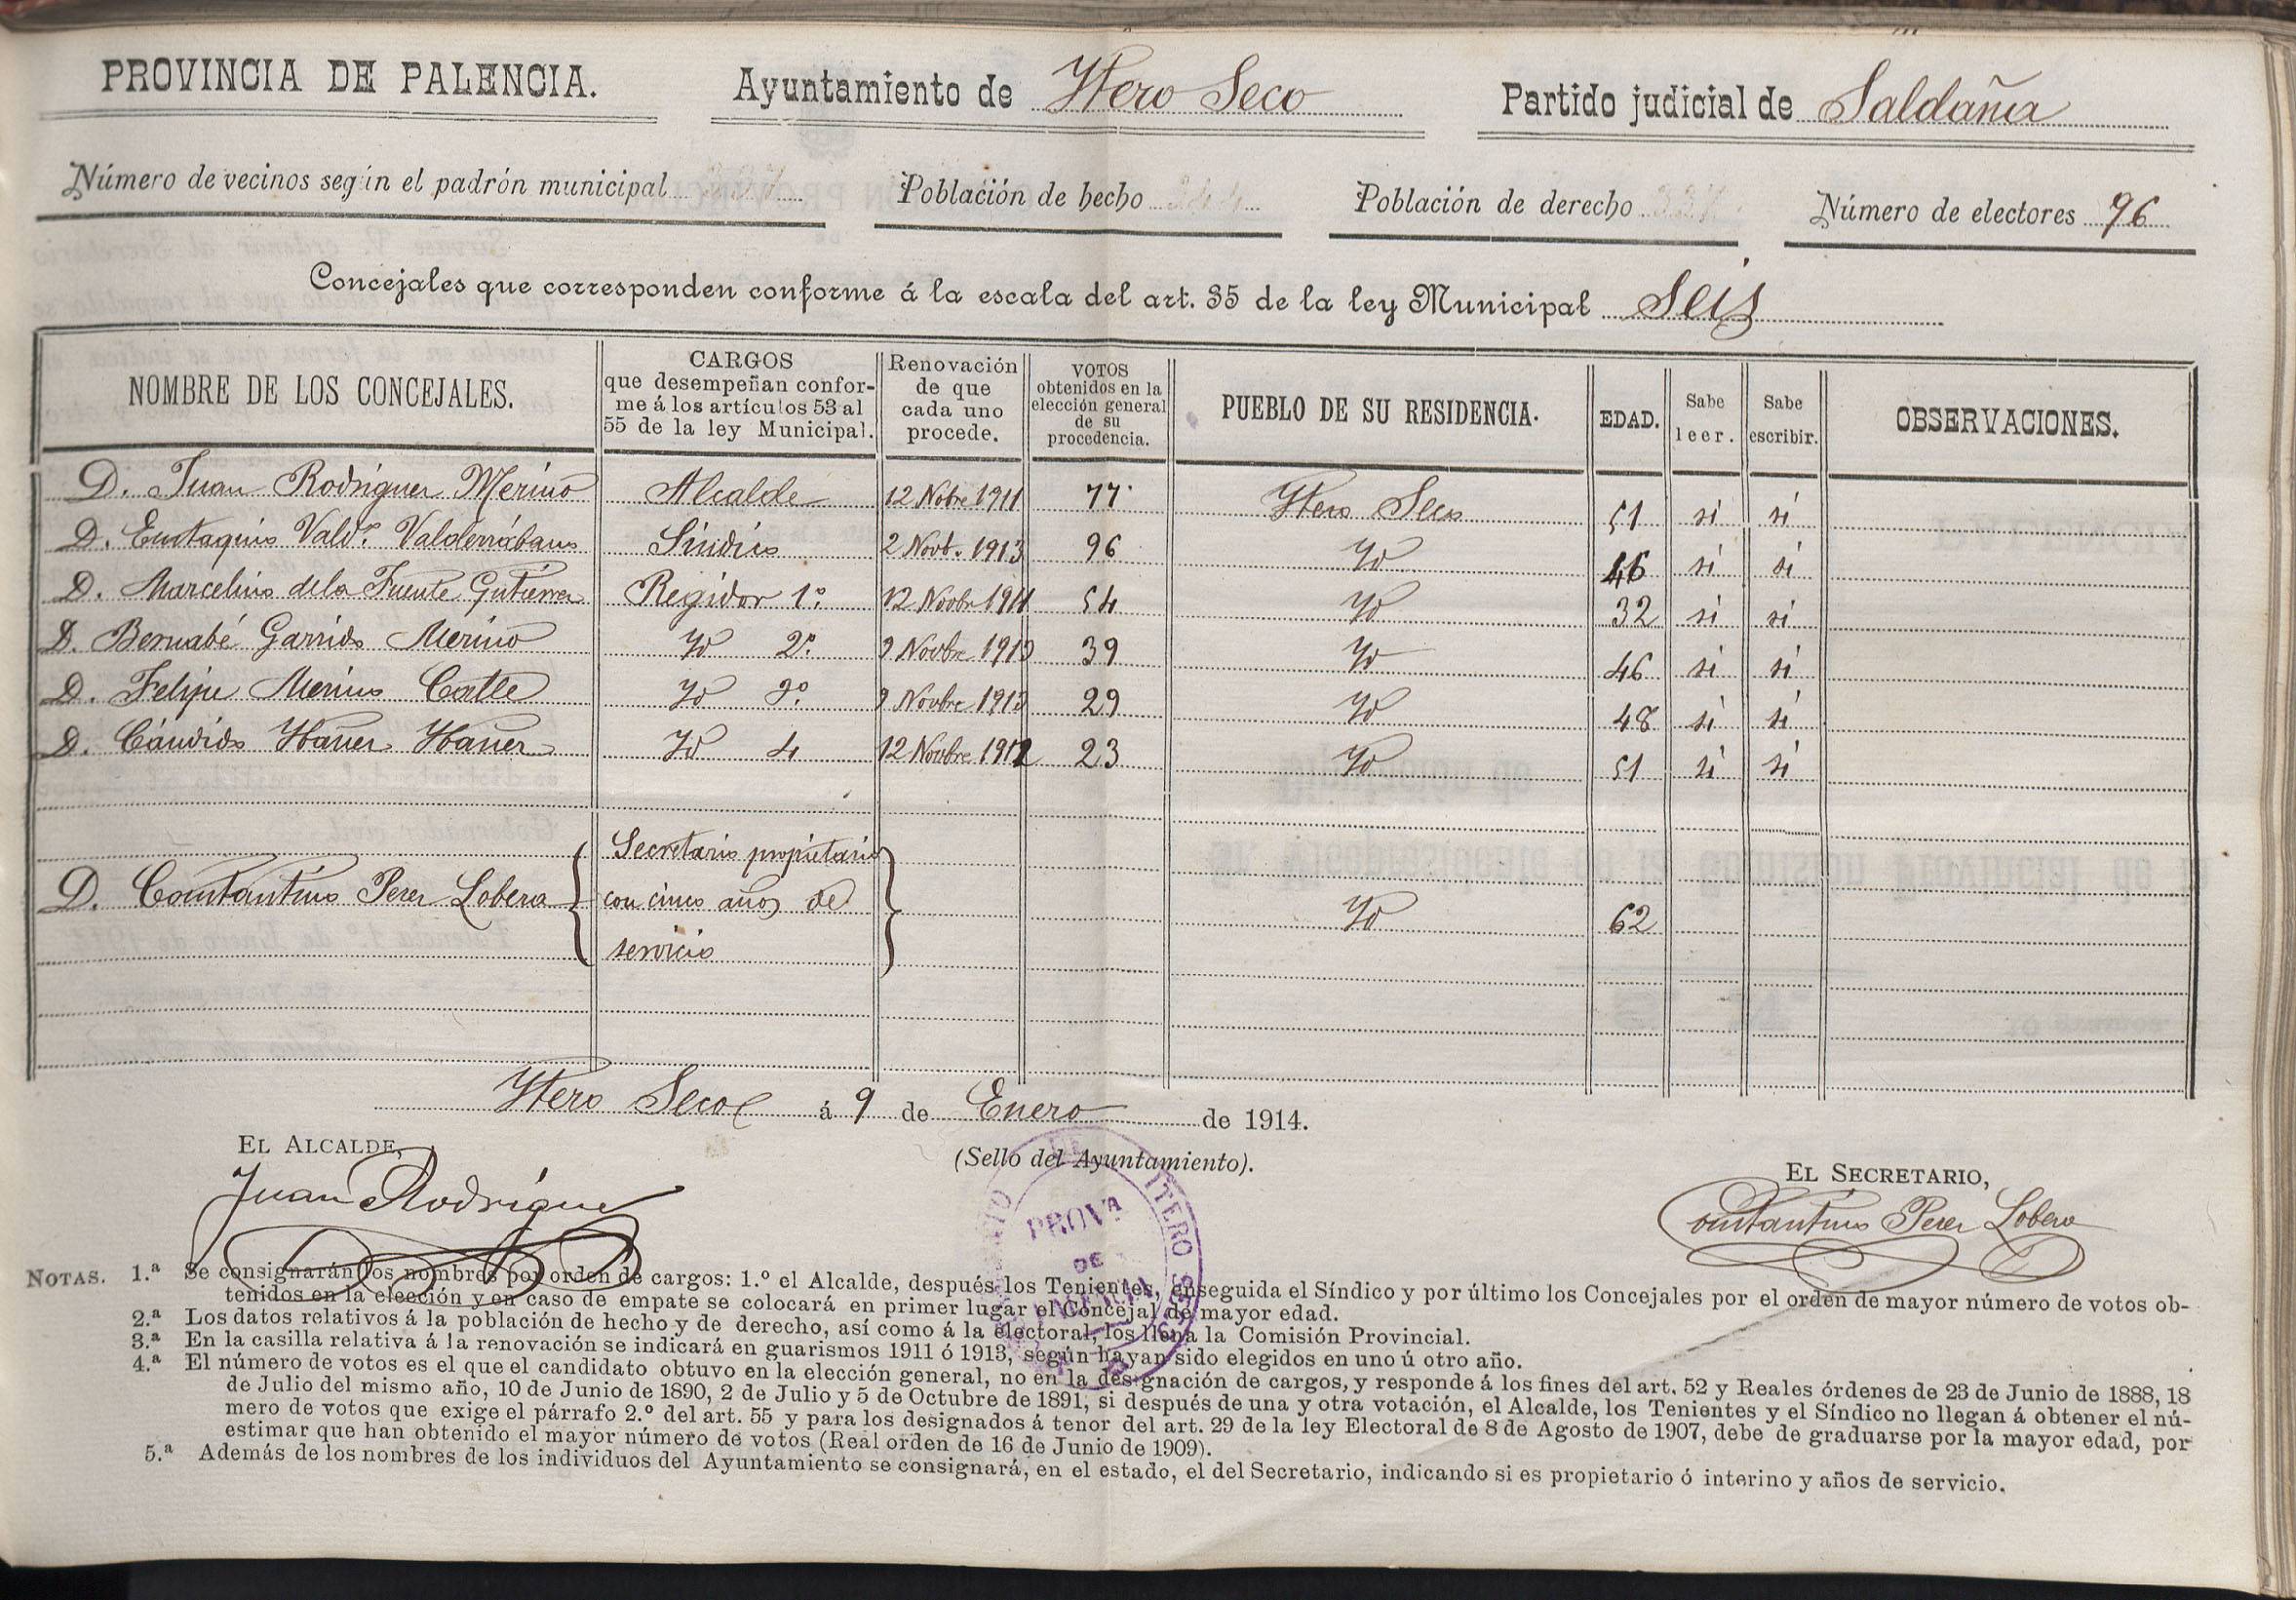 PROVINCIA DE PALENCIA. Ayuntamiento de Ytero Seco Partido judicial de Saldaña
Número de vecinos según el padrón municipal Población de hecho 344 Población de derecho Número de electores 96
Concejales que corresponden conforme á la escala del art. 35 de la ley Municipal Seis
NOMBRE DE LOS CONCEJALES. CARGOS que desempeñan conforme á los artículos 53 al 55 de la ley Municipal. Renovación de que cada uno procede. VOTOS obtenidos en la elección general de su procedencia. PUEBLO DE SU RESIDENCIA. EDAD. Sabe leer. Sabe escribir. OBSERVACIONES.
D. Juan Rodriguez Merino Alcalde 12 Nobre 1911 77 Ytero Seco 51 si si
D. Eustaquio Vald.º Valderrábano Síndico 2 Novb. 1913 96 Yd 46 si si
D. Marcelino de la Fuente Gutierrez Regidor 1º 12 Novbre 1911 54 Yd 32 si si
D. Bernabé Garrido Merino Yd 2º 9 Novbre 1913 39 Yd 46 si si
D. Felipe Merino Calle Yd 3º 9 Novbre 1913 29 Yd 48 si si
D. Cándido Ybañez Ybañez Yd 4 12 Novbre 1911 23 Yd 51 si si
Secretario propietario
D. Constantino Perez Lobera con cinco años de Yd 62
servicio
Ytero Seco á 9 de Enero de 1914.
EL ALCALDE, (Sello del Ayuntamiento). EL SECRETARIO,
Juan Rodriguez Constantino Perez Lobera
ITERO
PROVª
DE
NOTAS. 1.ª Se consignarán los nombres por orden de cargos: 1.º el Alcalde, después los Tenientes, enseguida el Síndico y por último los Concejales por el orden de mayor número de votos ob-
tenidos en la elección y en caso de empate se colocará en primer lugar el Concejal de mayor edad.
2.ª Los datos relativos á la población de hecho y de derecho, así como á la electoral, los llena la Comisión Provincial.
3.ª En la casilla relativa á la renovación se indicará en guarismos 1911 ó 1913, según hayan sido elegidos en uno ú otro año.
4.ª El número de votos es el que el candidato obtuvo en la elección general, no en la designación de cargos, y responde á los fines del art. 52 y Reales órdenes de 23 de Junio de 1888, 18
de Julio del mismo año, 10 de Junio de 1890, 2 de Julio y 5 de Octubre de 1891; si después de una y otra votación, el Alcalde, los Tenientes y el Síndico no llegan á obtener el nú-
mero de votos que exige el párrafo 2.º del art. 55 y para los designados á tenor del art. 29 de la ley Electoral de 8 de Agosto de 1907, debe de graduarse por la mayor edad, por
estimar que han obtenido el mayor número de votos (Real orden de 16 de Junio de 1909).
5.ª Además de los nombres de los individuos del Ayuntamiento se consignará, en el estado, el del Secretario, indicando si es propietario ó interino y años de servicio.